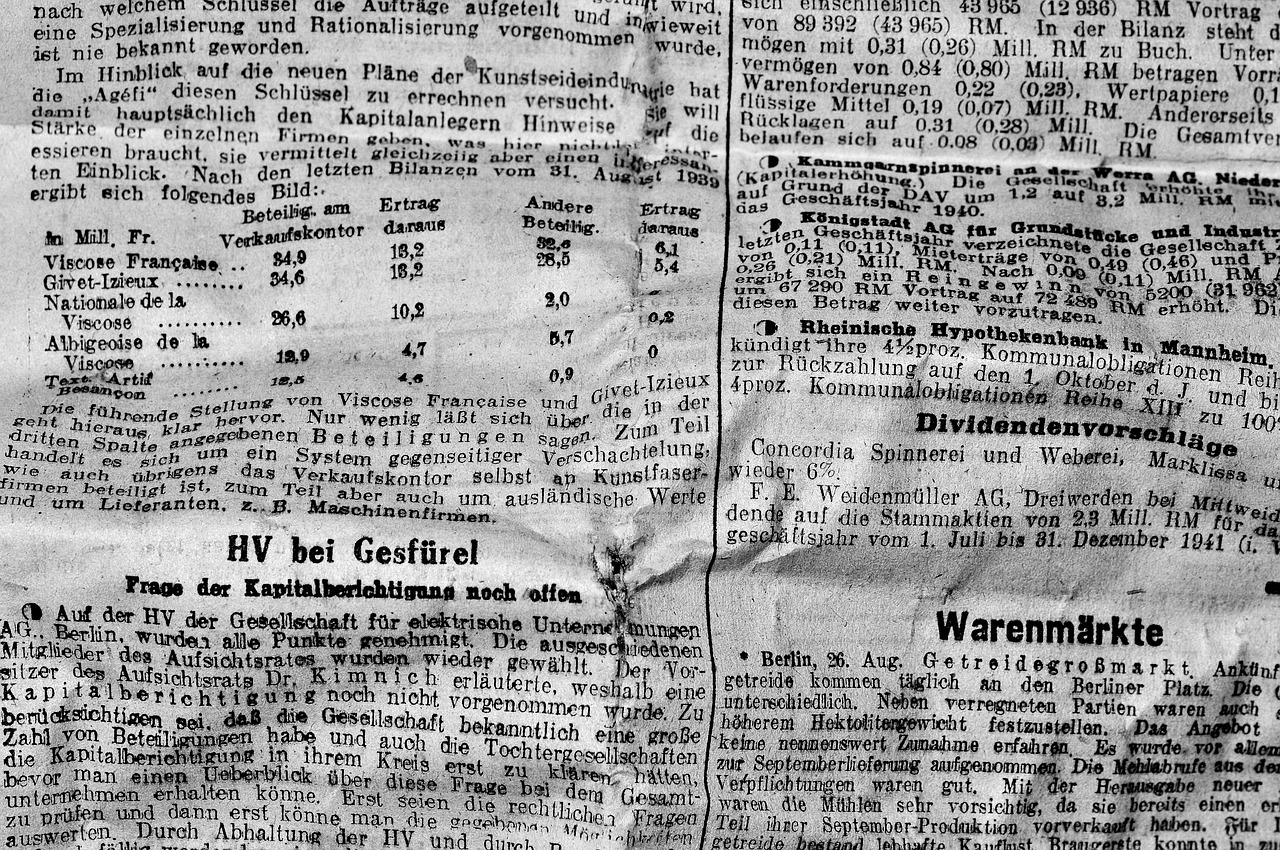 nach welchem Schlüssel die Aufträge aufgeteilt wird,
eine Spezialisierung und Rationalisierung vorgenommen und inwieweit
ist nie bekannt geworden. wurde,
Im Hinblick auf die neuen Pläne der Kunstseideindustrie hat
die „Agéfi" diesen Schlüssel zu errechnen versucht. Sie will
damit hauptsächlich den Kapitalanlegern Hinweise auf die
Stärke der einzelnen Firmen geben, was hier nicht inter-
essieren braucht, sie vermittelt gleichzeitig aber einen interessan-
ten Einblick. Nach den letzten Bilanzen vom 31. August 1939
ergibt sich folgendes Bild:
Beteilig. am Ertrag Andere Ertrag
In Mill. Fr. Verkaufskontor daraus Beteilig. daraus
Viscose Française .. 34,9 13,2 32,6 6,1
Givet-Izieux ........ 34,6 13,2 28,5 5,4
Nationale de la
Viscose .......... 26,6 10,2 2,0 0,2
Albigeoise de la
Viscose .......... 12,9 4,7 5,7 0
Text. Artif
Besançon ........ 12,5 4,6 0,9
Die führende Stellung von Viscose Française und Givet-Izieux
geht hieraus klar hervor. Nur wenig läßt sich über die in der
dritten Spalte angegebenen Beteiligungen sagen. Zum Teil
handelt es sich um ein System gegenseitiger Verschachtelung,
wie auch übrigens das Verkaufskontor selbst an Kunstfaser-
firmen beteiligt ist, zum Teil aber auch um ausländische Werte
und um Lieferanten, z. B. Maschinenfirmen.
HV bei Gesfürel
Frage der Kapitalberichtigung noch offen
Auf der HV der Gesellschaft für elektrische Unternehmungen
AG., Berlin, wurden alle Punkte genehmigt. Die ausgeschiedenen
Mitglieder des Aufsichtsrates wurden wieder gewählt. Der Vor-
sitzer des Aufsichtsrats Dr. Kimnich erläuterte, weshalb eine
Kapitalberichtigung noch nicht vorgenommen wurde. Zu
berücksichtigen sei, daß die Gesellschaft bekanntlich eine große
Zahl von Beteiligungen habe und auch die Tochtergesellschaften
die Kapitalberichtigung in ihrem Kreis erst zu klären hätten,
bevor man einen Ueberblick über diese Frage bei dem Gesamt-
unternehmen erhalten könne. Erst seien die rechtlichen Fragen
zu prüfen und dann erst könne man die gegebenen Möglichkeiten
auswerten. Durch Abhaltung der HV und durch
sich einschließlich 43 965 (12 936) RM Vortrag
von 89 392 (43 965) RM. In der Bilanz steht
mögen mit 0,31 (0,26) Mill. RM zu Buch. Unter
vermögen von 0,84 (0,80) Mill. RM betragen
Warenforderungen 0,22 (0,23), Wertpapiere
flüssige Mittel 0,19 (0,07) Mill. RM. Andererseits
Rücklagen auf 0,31 (0,28) Mill. Die
belaufen sich auf 0.08 (0,03) Mill. RM.
Kammgarnspinnerei an der Werra AG,
(Kapitalerhöhung.) Die Gesellschaft erhöhte
auf Grund der DAV um 1,2 auf 3,2 Mill. RM
das Geschäftsjahr 1940.
Königstadt AG für Grundstücke und
letzten Geschäftsjahr verzeichnete die Gesellschaft
von 0,11 (0,11), Mieterträge von 0,49 (0,46) und
(0,21) Mill. RM. Nach 0,09 (0,11) Mill. RM
0,26 ergibt sich ein Reingewinn von 5200 (31 962)
um 67 290 RM Vortrag auf 72 489 RM erhöht.
diesen Betrag weiter vorzutragen.
Rheinische Hypothekenbank in Mannheim.
kündigt ihre 4½proz. Kommunalobligationen
zur Rückzahlung auf den 1. Oktober d. J. und
4proz. Kommunalobligationen Reihe XIII zu
Dividendenvorschläge
Concordia Spinnerei und Weberei, Marklissa
wieder 6%.
F. E. Weidenmüller AG, Dreiwerden bei
dende auf die Stammaktien von 2,3 Mill. RM für
geschäftsjahr vom 1. Juli bis 31. Dezember 1941 (i.
Warenmärkte
* Berlin, 26. Aug. Getreidegroßmarkt.
getreide kommen täglich an den Berliner Platz. Die
unterschiedlich. Neben verregneten Partien waren auch
höherem Hektolitergewicht festzustellen. Das Angebot
keine nennenswert Zunahme erfahren. Es wurde vor allem
zur Septemberlieferung aufgenommen. Die Mehlabrufe aus
Verpflichtungen waren gut. Mit der Herausgabe neuer
waren die Mühlen sehr vorsichtig, da sie bereits einen
Teil ihrer September-Produktion vorverkauft haben. Für
getreide bestand lebhafte Kauflust. Braugerste konnte in